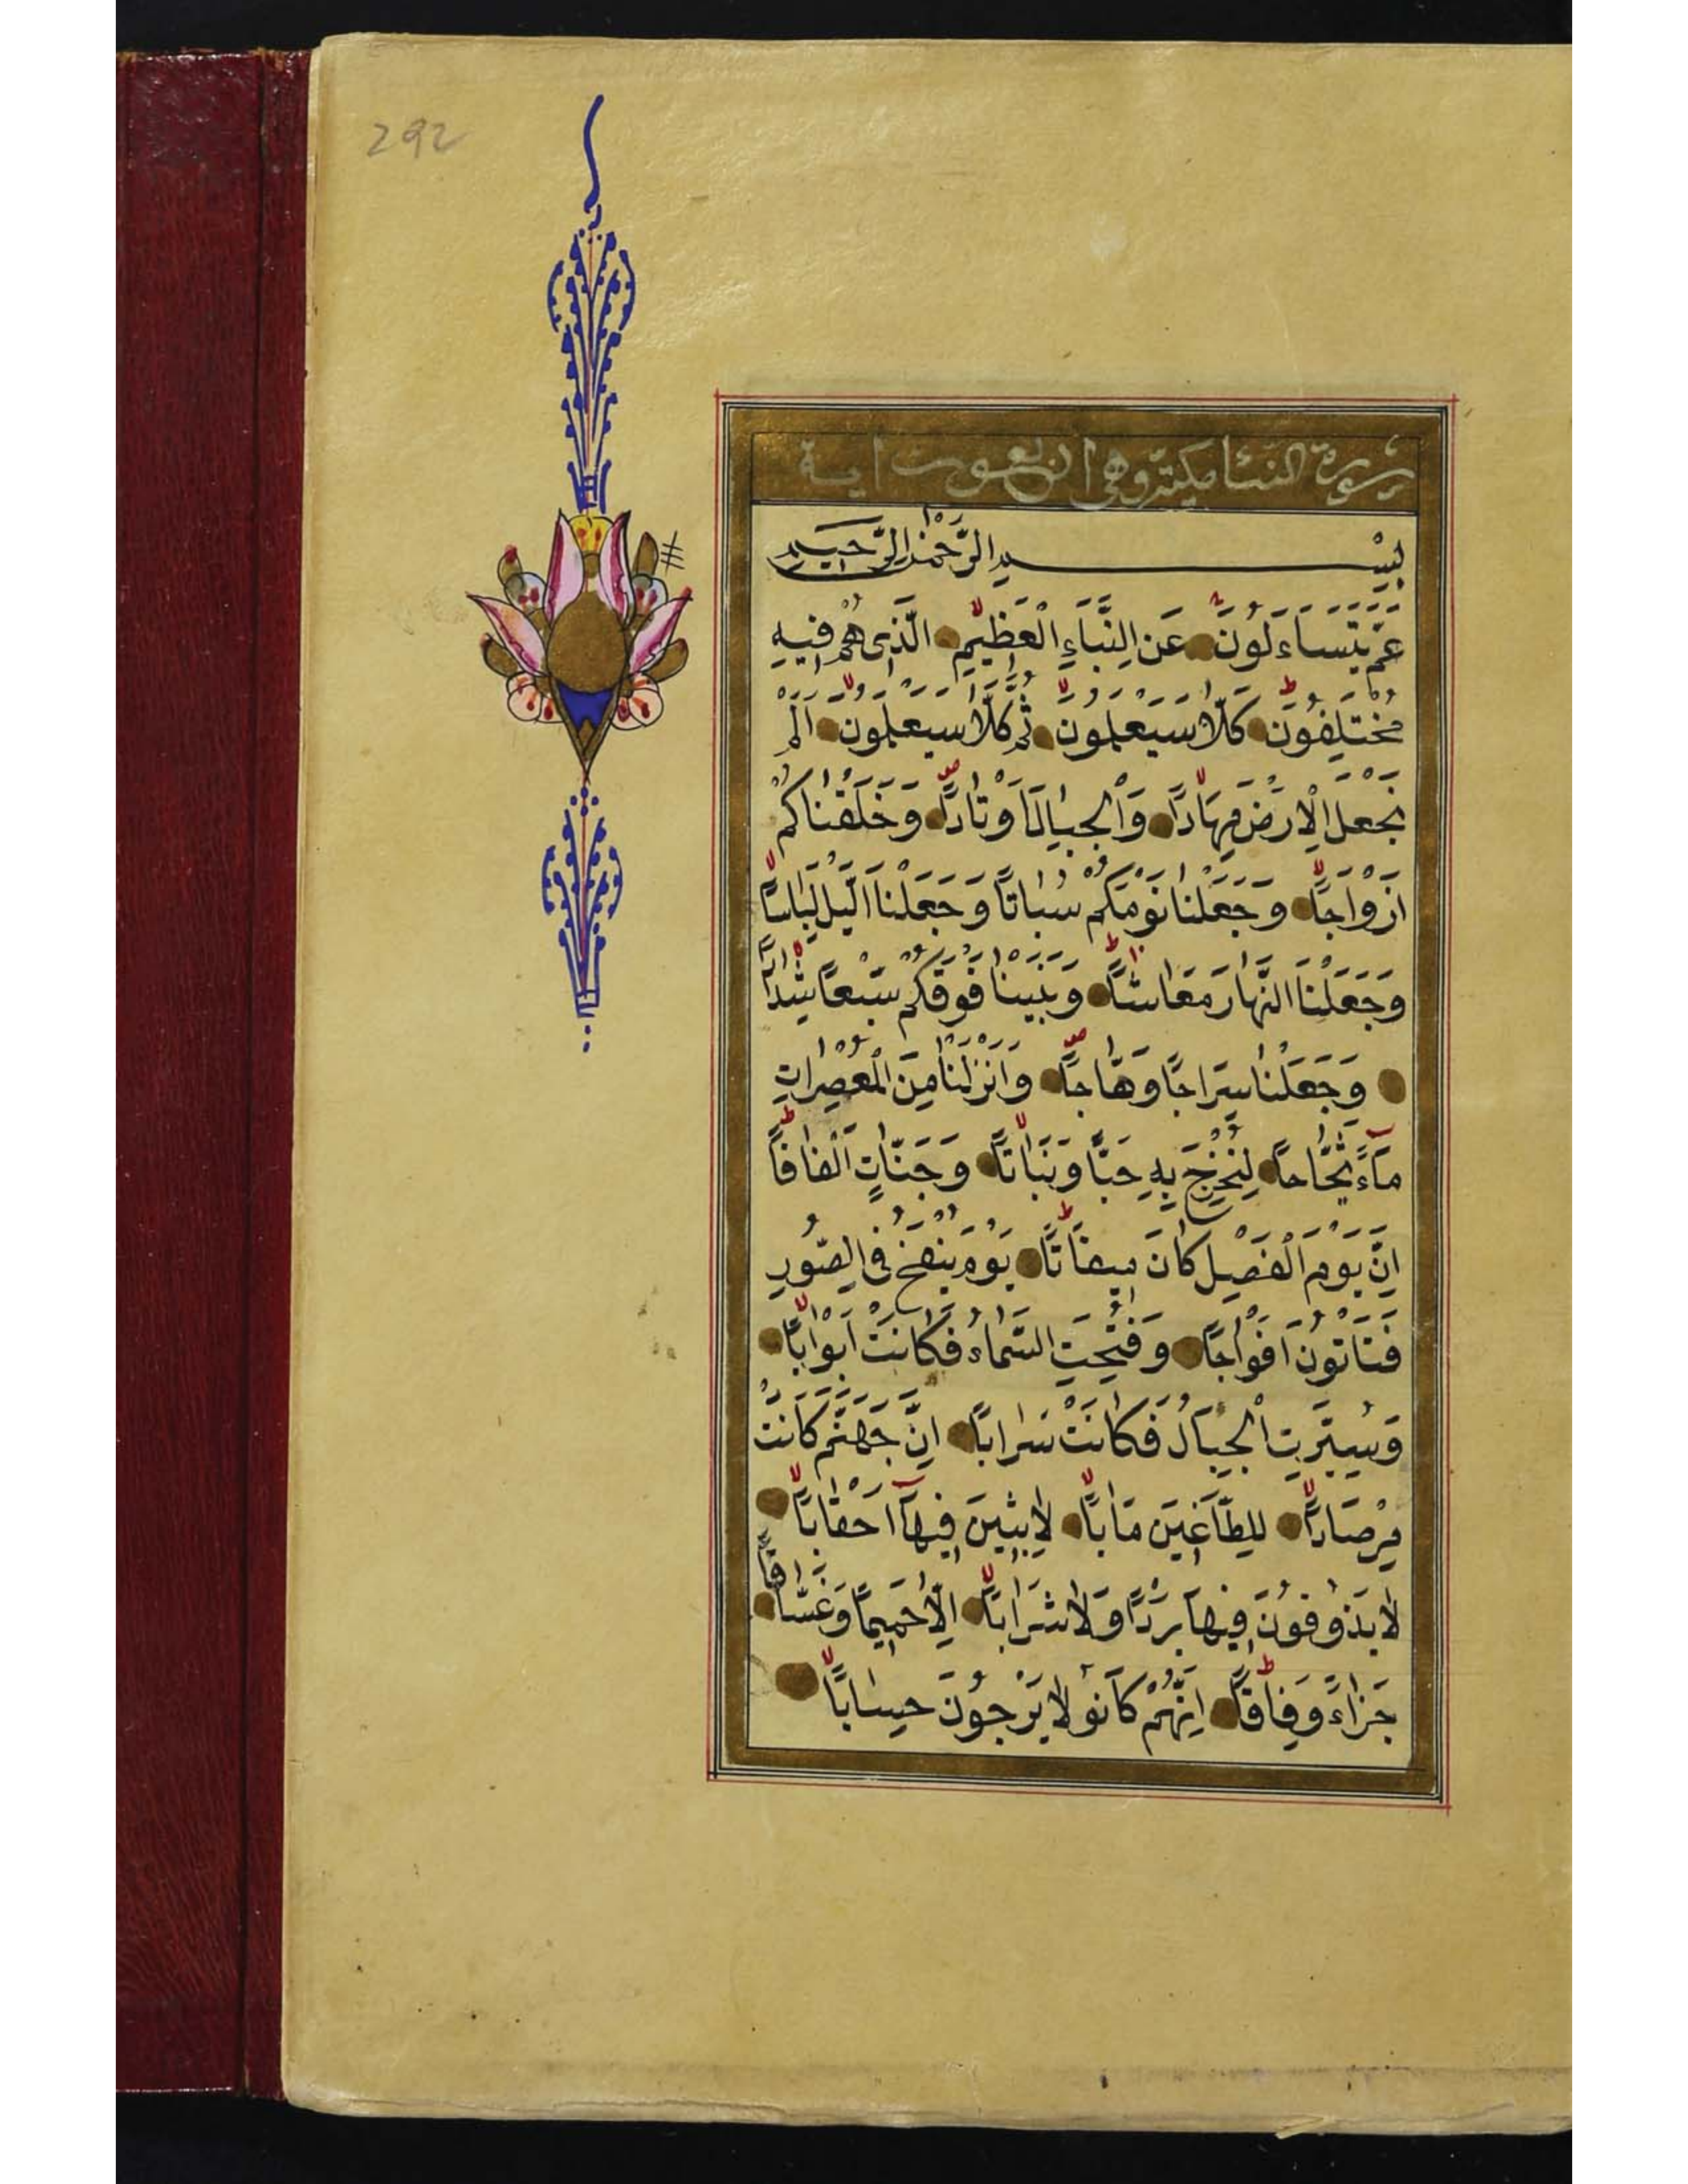 292
سورة النبا مكية وهى اربعون اية
بِسْمِ الرَّحْمٰنِ الرَّحيمِ
عَمَّ يَتَسَاءَلُونَ عَنِ النَّبَاءِ الْعَظيمِ الَّذى هُمْ فيهِ
مُخْتَلِفُونَ كَلَّا سَيَعْلَمُونَ ثُمَّ كَلَّا سَيَعْلَمُونَ اَلَمْ
نَجْعَلِ الْاَرْضَ مِهَادًا وَالْجِبَالَ اَوْتَادًا وَخَلَقْنَاكُمْ
اَزْوَاجًا وَجَعَلْنَا نَوْمَكُمْ سُبَاتًا وَجَعَلْنَا الَّيْلَ لِبَاسًا
وَجَعَلْنَا النَّهَارَ مَعَاشًا وَبَنَيْنَا فَوْقَكُمْ سَبْعًا شِدَادًا
وَجَعَلْنَا سِرَاجًا وَهَّاجًا وَاَنْزَلْنَا مِنَ الْمُعْصِرَاتِ
مَاءً ثَجَّاجًا لِنُخْرِجَ بِهِ حَبًّا وَنَبَاتًا وَجَنَّاتٍ اَلْفَافًا
اِنَّ يَوْمَ الْفَصْلِ كَانَ ميقَاتًا يَوْمَ يُنْفَخُ فِى الصُّورِ
فَتَاْتُونَ اَفْوَاجًا وَفُتِحَتِ السَّمَاءُ فَكَانَتْ اَبْوَابًا
وَسُيِّرَتِ الْجِبَالُ فَكَانَتْ سَرَابًا اِنَّ جَهَنَّمَ كَانَتْ
مِرْصَادًا لِلطَّاغينَ مَاٰبًا لَابِثينَ فيهَا اَحْقَابًا
لَا يَذُوقُونَ فيهَا بَرْدًا وَلَا شَرَابًا اِلَّا حَميمًا وَغَسَّاقًا
جَزَاءً وِفَاقًا اِنَّهُمْ كَانُوا لَا يَرْجُونَ حِسَابًا